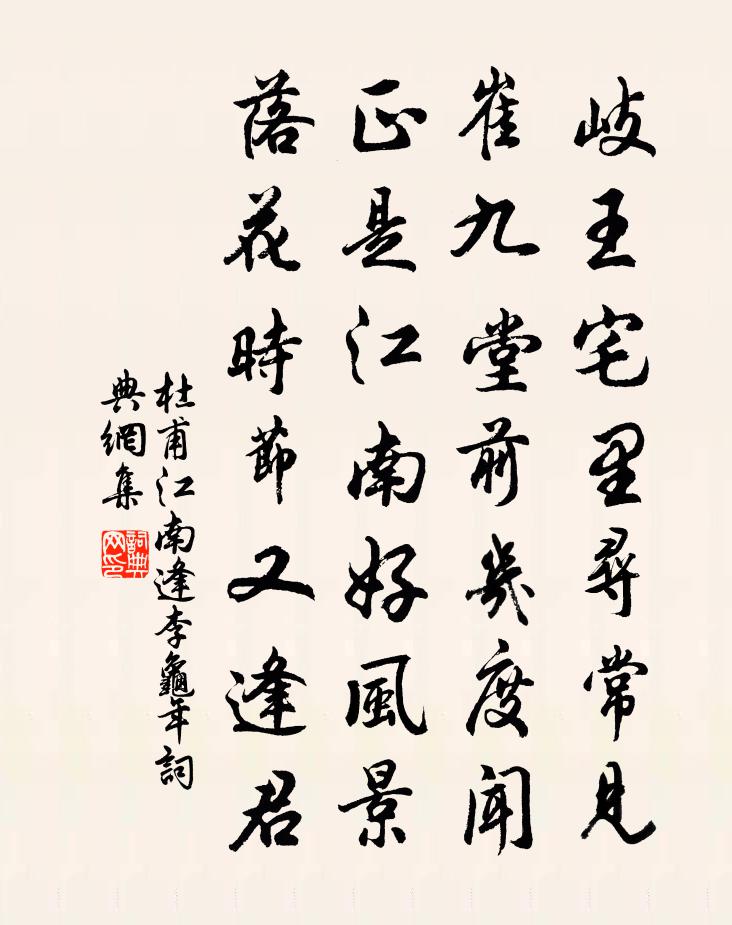 岐王宅里尋常見
崔九堂前幾度聞
正是江南好風景
落花時節又逢君
杜甫江南逢李龜年詞
典網集
詞典
网印